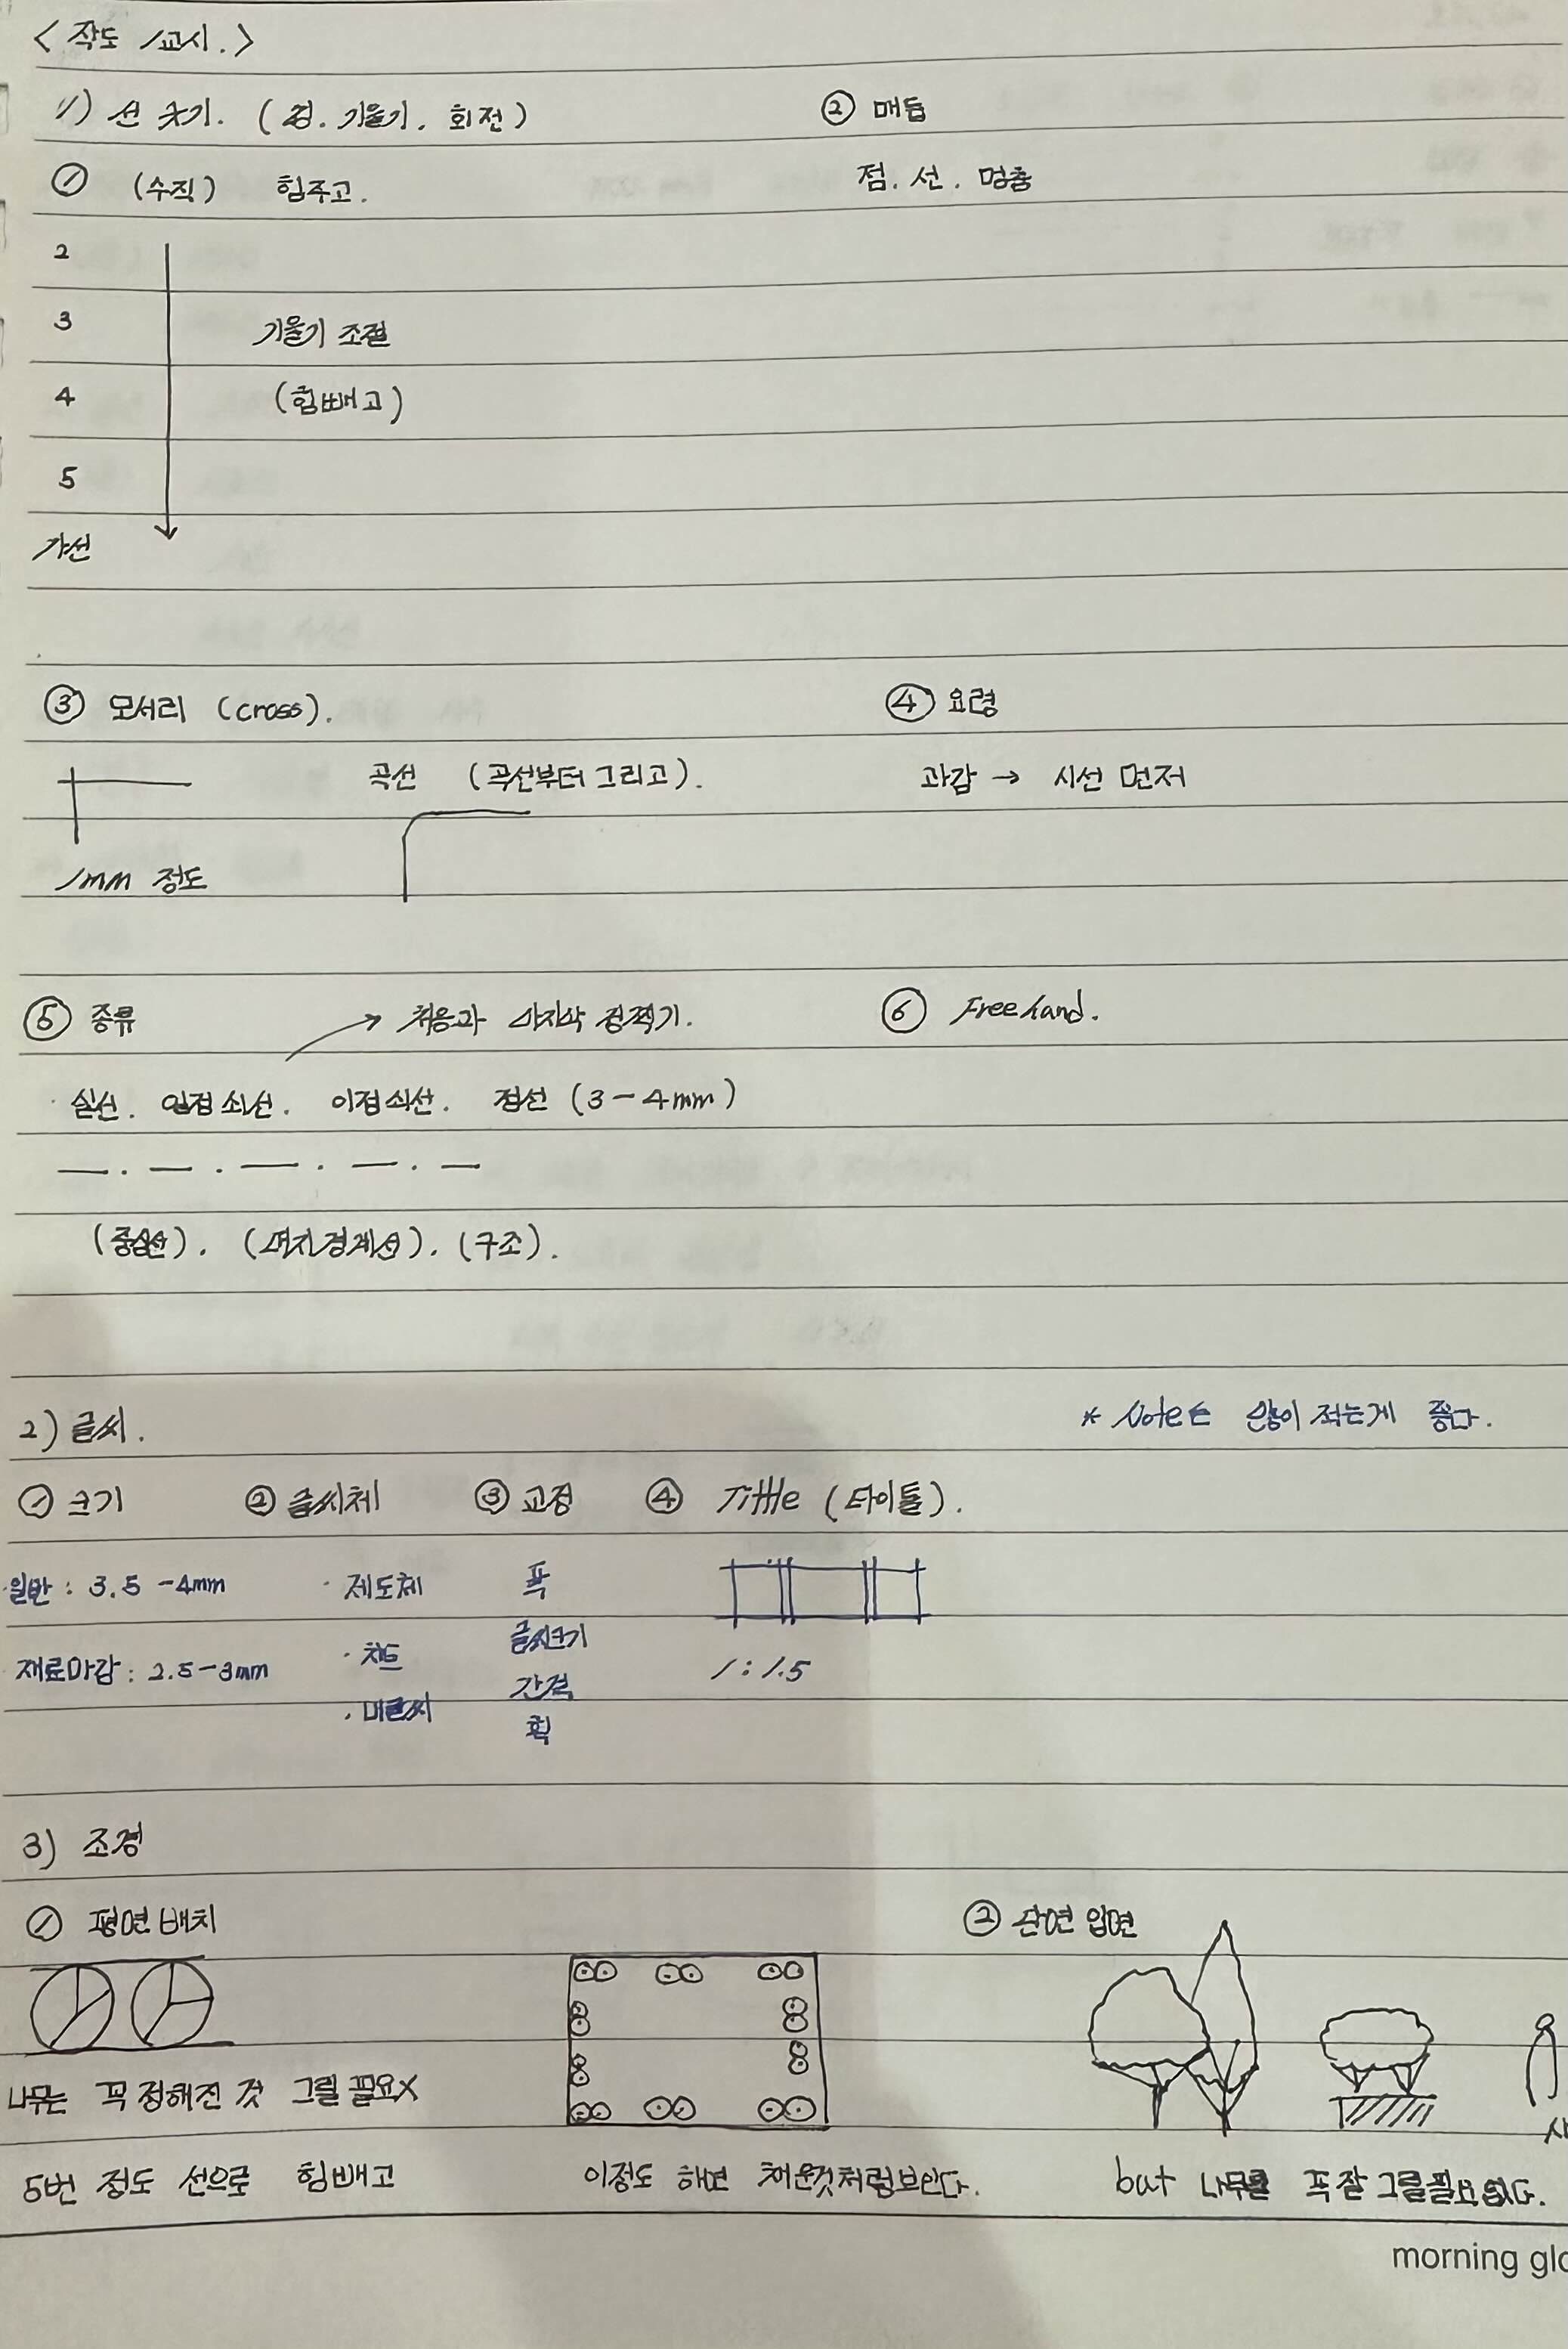 < 작도 1교시. >
1) 선 긋기. (정. 기울기. 회전)
① (수직) 힘주고.
2
3 기울기 조절
4 (힘빼고)
5
가선
② 매듭
점. 선. 멈춤
③ 모서리 (cross).
곡선 (곡선부터 그리고).
1mm 정도
④ 요령
과감 → 시선 먼저
⑤ 종류 → 처음과 마지막 점찍기.
실선. 일점쇄선. 이점쇄선. 점선 (3-4mm)
(중심선). (대지경계선). (구조).
⑥ Freehand.
2) 글씨.
* Note는 많이 적는게 좋다.
① 크기
일반 : 3.5 -4mm
재료마감 : 2.5-3mm
② 글씨체
· 제도체
· 차트
· 내글씨
③ 교정
폭
글씨크기
간격
획
④ Tittle (타이틀).
1 : 1.5
3) 조경
① 평면배치
나무는 꼭 정해진 것 그릴 필요X
5번 정도 선으로 힘빼고
이정도 하면 채운것처럼보인다.
② 단면 입면
but 나무를 꼭 잘 그릴필요 없다.
morning glo